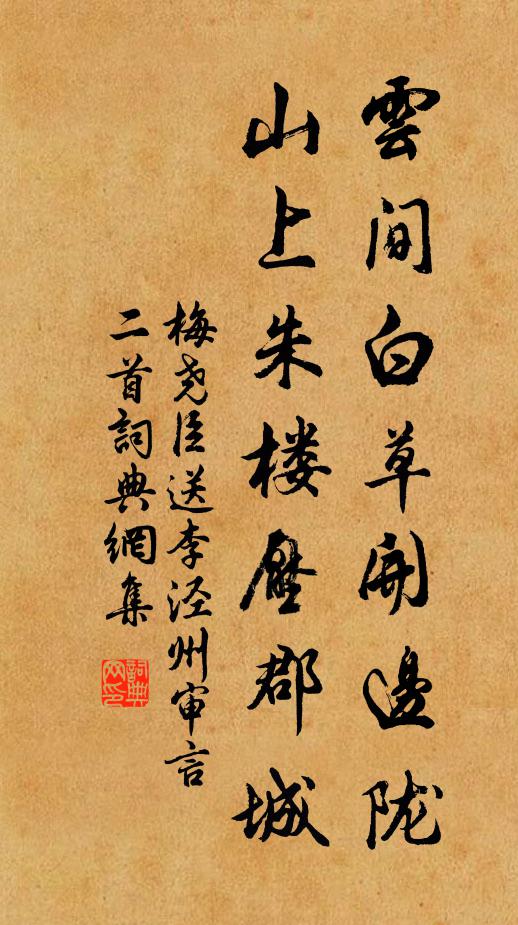 雲间白草開邊陇
山上朱楼壓郡城
梅尧臣送李泾州审言
二首詞典網集
詞典网印